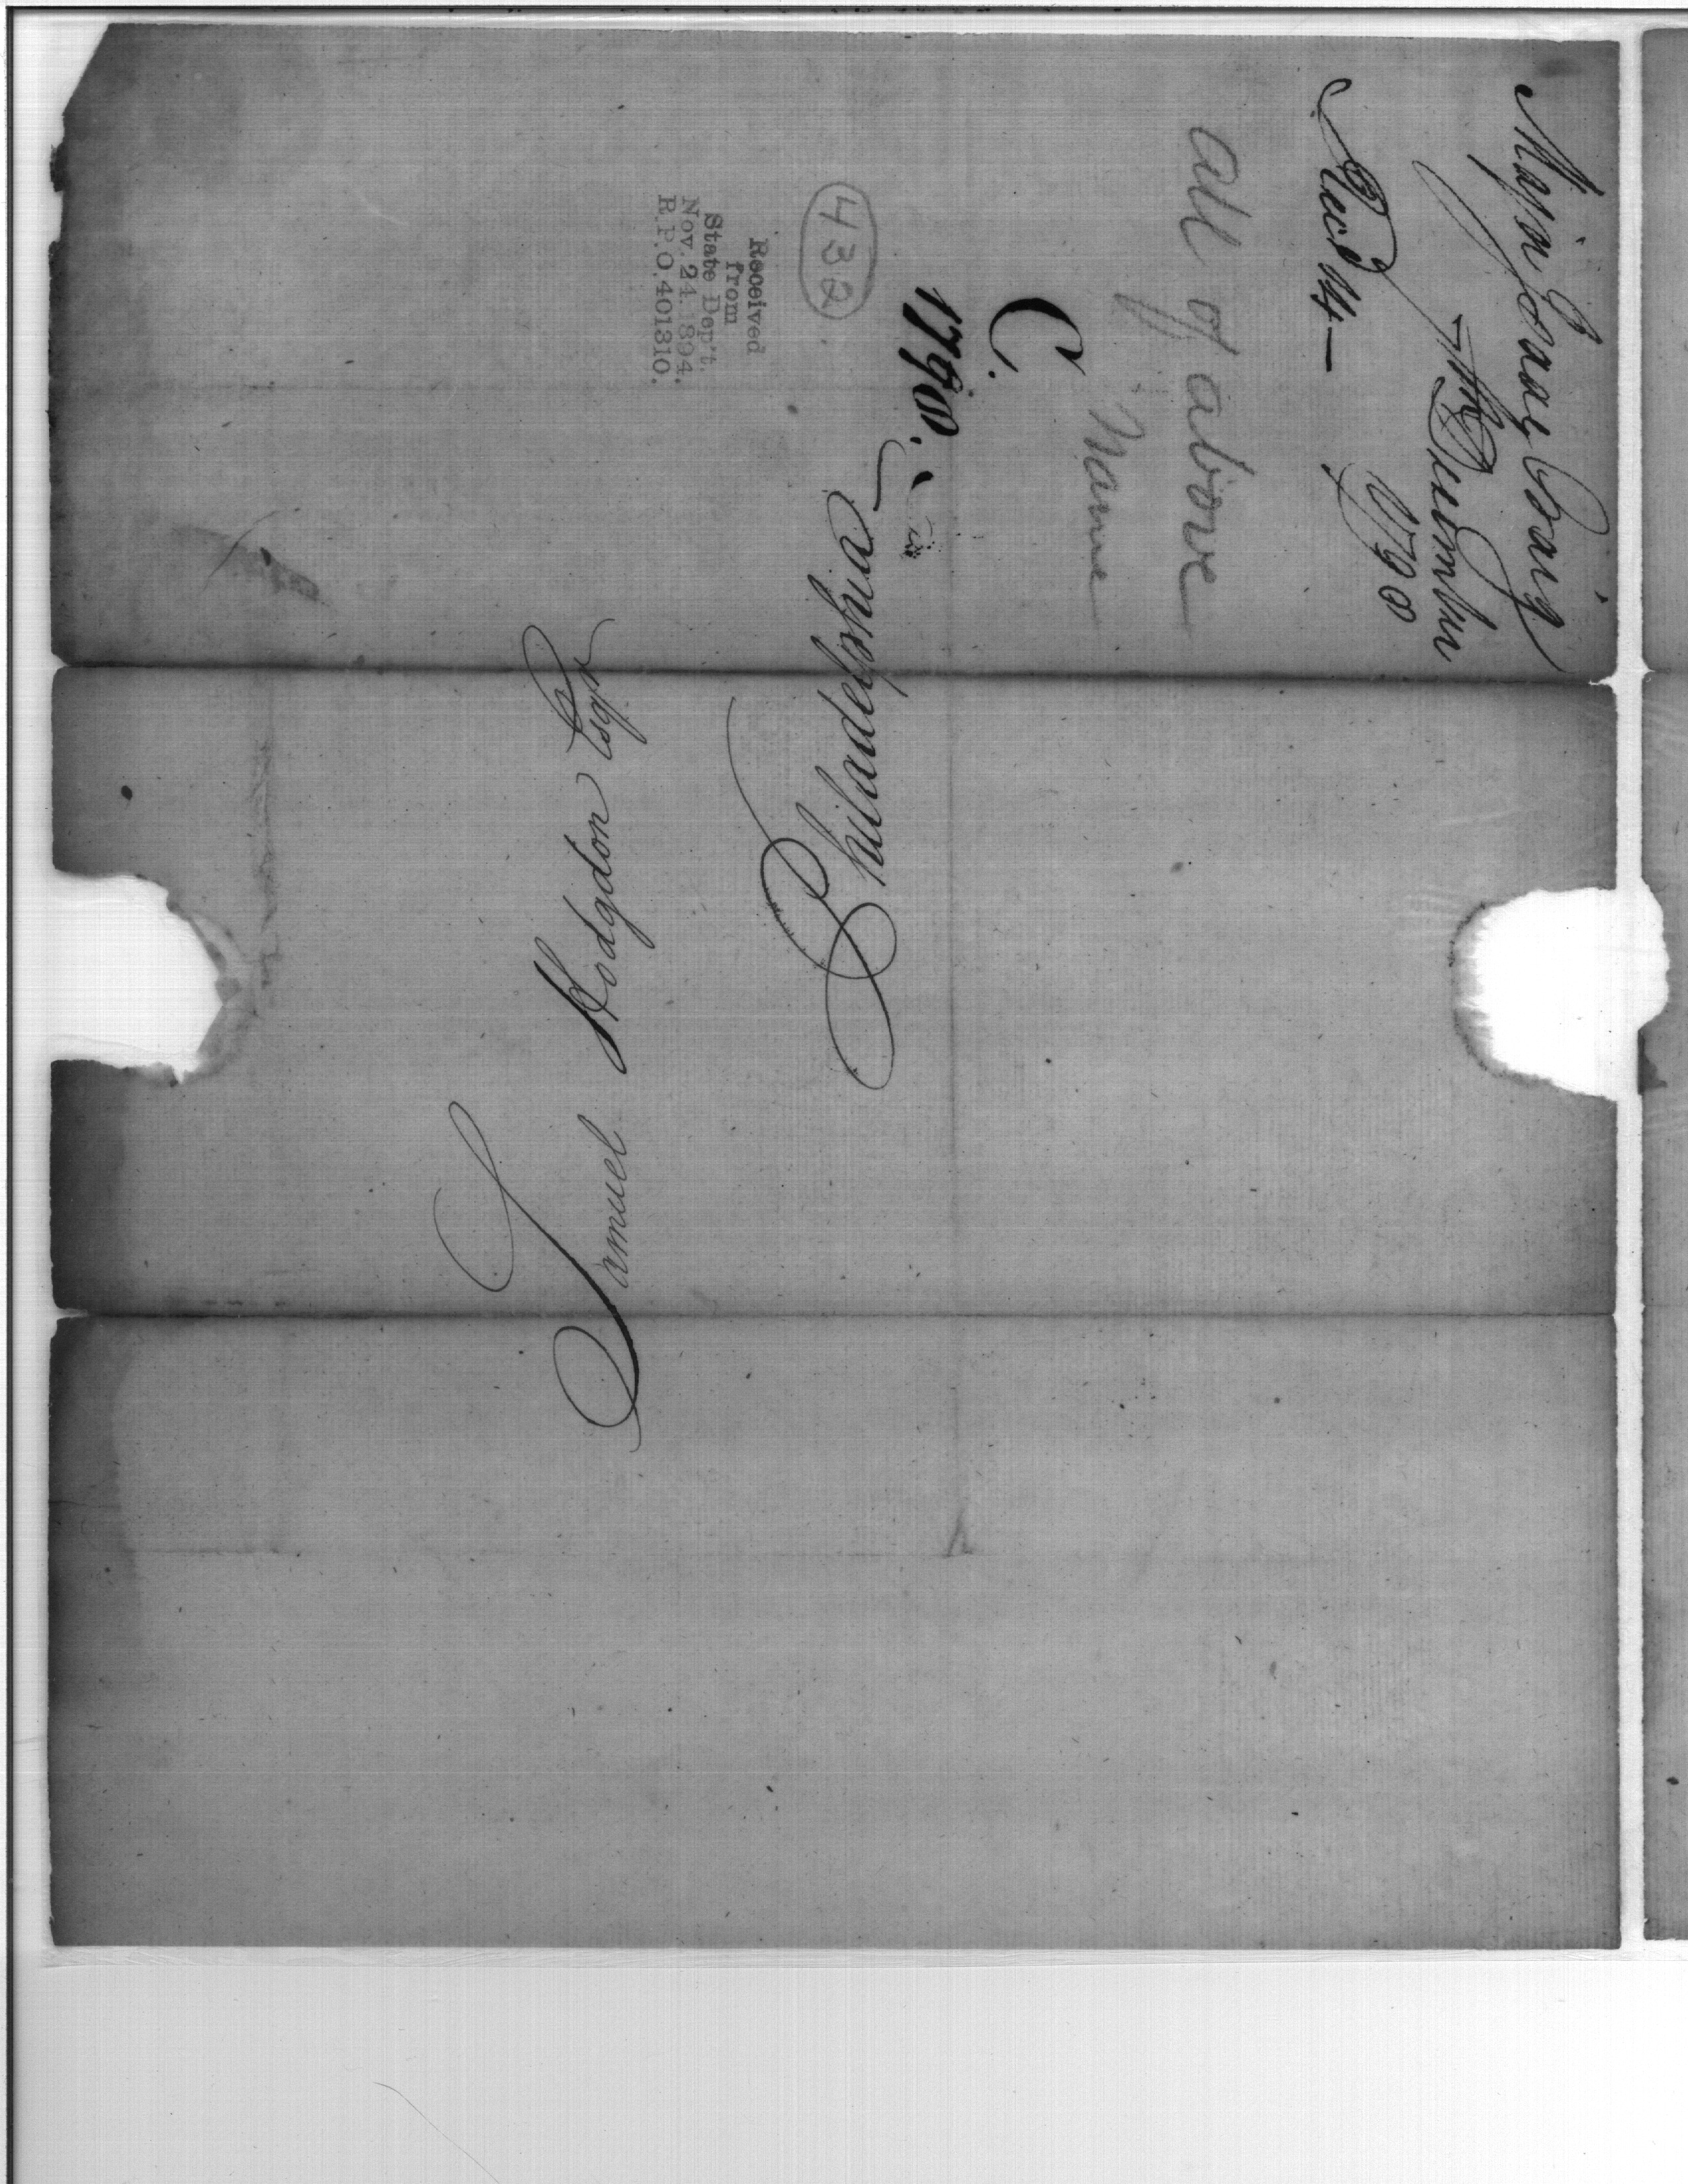 Major Isaac Craig
7th December
1790
Recd 14 —
all of above
Name
C.
1790.
432
Received
from
State Dep't.
Nov. 24. 1894.
R.P.O. 401310.
Samuel Hodgdon Esqr
Philadelphia